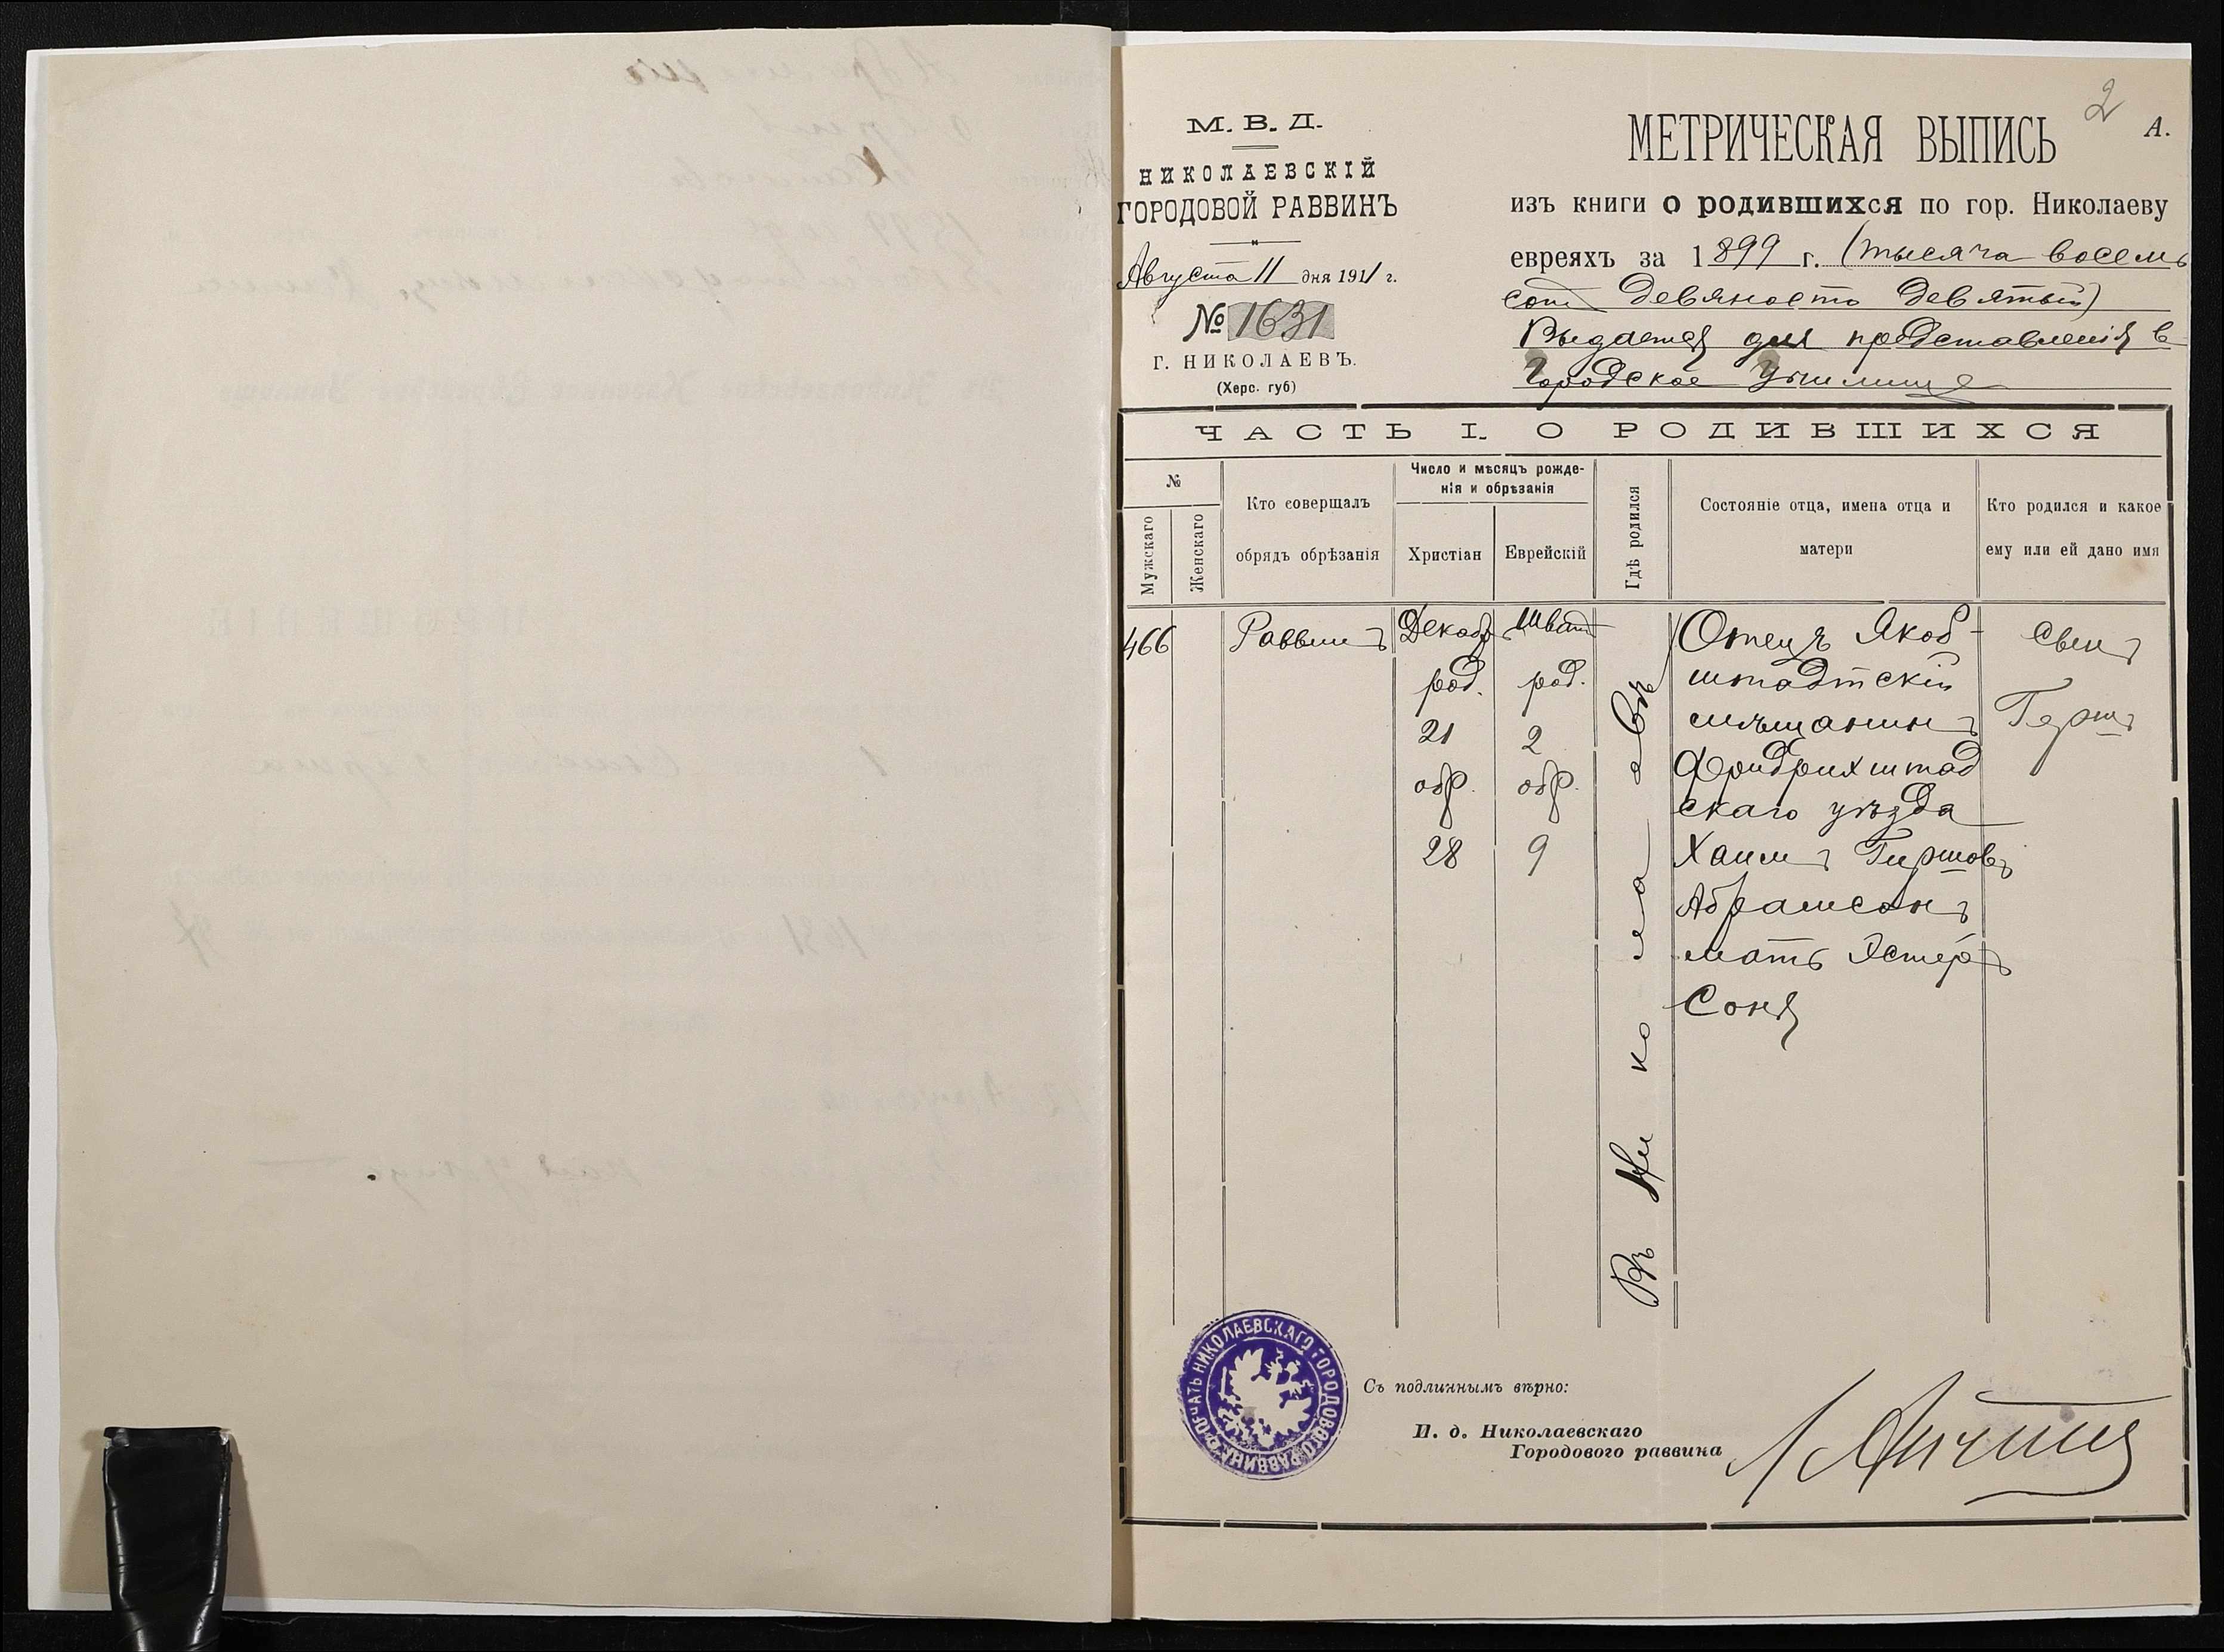 2
А.
М. В. Д.
НИКОЛАЕВСКІЙ
ГОРОДОВОЙ РАВВИНЪ
Августа 11 дня 1911 г.
№ 1631
г. НИКОЛАЕВЪ.
(Херс. губ)
МЕТРИЧЕСКАЯ ВЫПИСЬ
изъ книги о родившихся по гор. Николаеву
евреяхъ за 1899 г. (тысяча восемь
сот девяносто девятый)
Выдается для представленія в
Городское Училище
ЧАСТЬ I. О РОДИВШИХСЯ
№
Мужскаго
Женскаго
Кто совершалъ
обрядъ обрѣзанія
Число и мѣсяцъ рожде-
нія и обрѣзанія
Христіан
Еврейскій
Гдѣ родился
Состояніе отца, имена отца и
матери
Кто родился и какое
ему или ей дано имя
466
Раввинъ
Декабр
род.
21
обр.
28
Шват
род.
2
обр.
9
Въ Николаевѣ
Отецъ Якоб-
штадтскій
мѣщанинъ
Фридрихштад
скаго уѣзда
Хаимъ Гиршовъ
Абрамсонъ
мать Эстеръ
Соня
Сынъ
Гершъ
ПЕЧАТЬ НИКОЛАЕВСКАГО ГОРОДОВОГО РАВВИНА
Съ подлиннымъ вѣрно:
И. д. Николаевскаго
Городового раввина